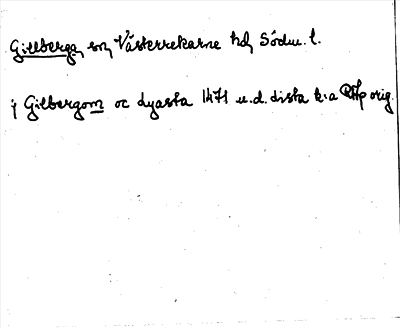 Gillberga, sn, Västerrekarne hd, Södm. l.
j Gilbergom oc dyasta 1471 u.d. dista k:a RAp orig.